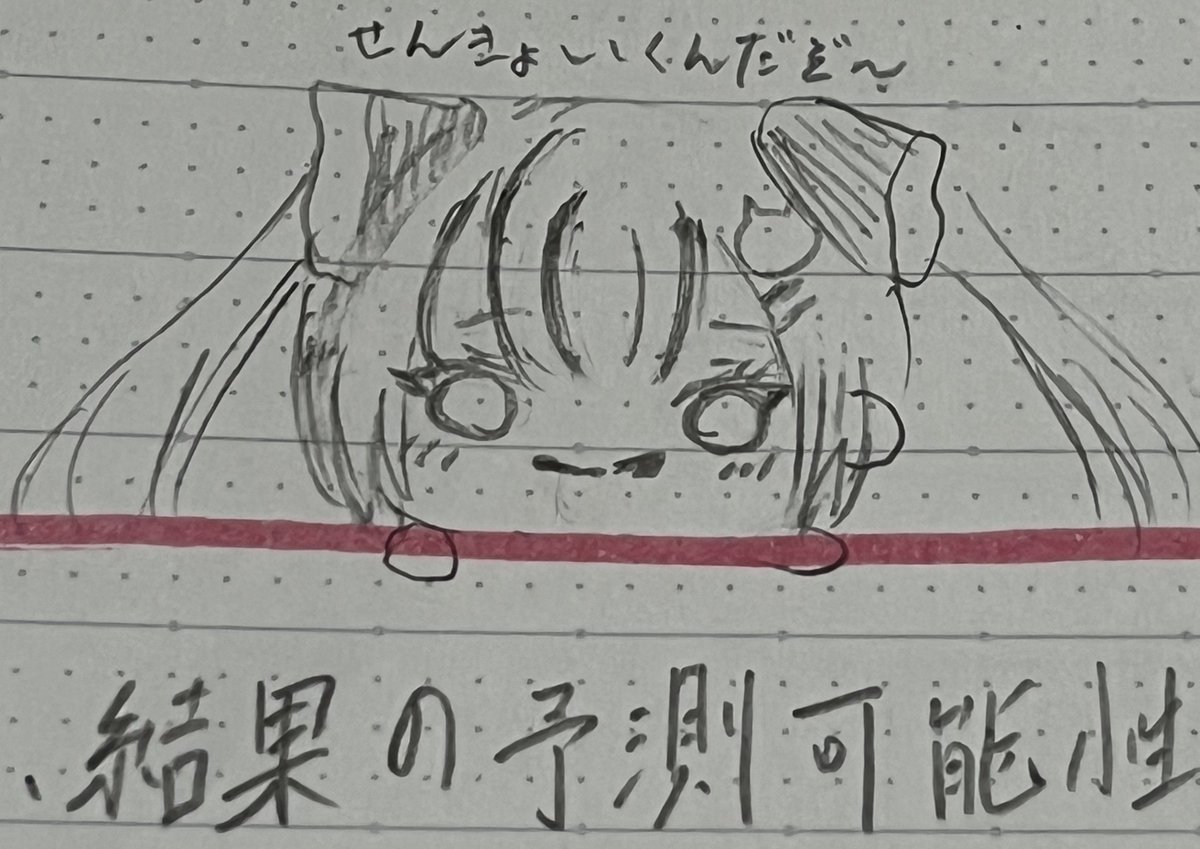 せんきょいくんだぞ〜
、結果の予測可能性